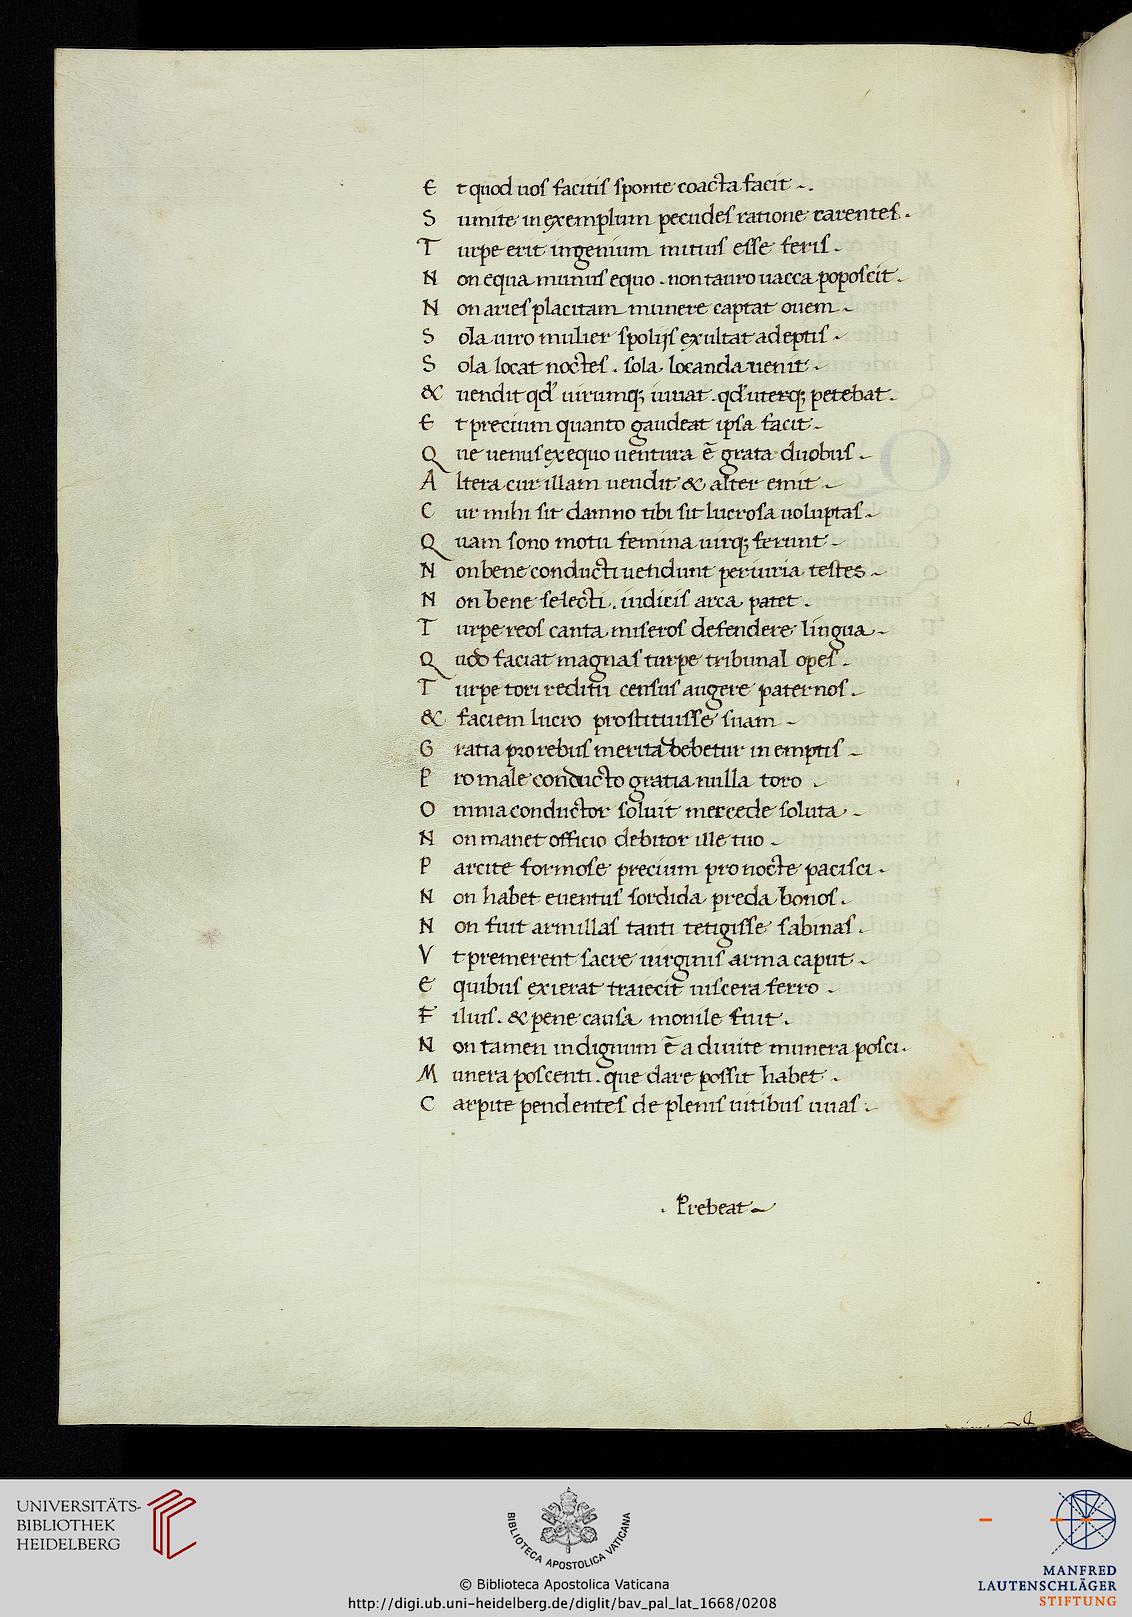 E t quod uos facitis sponte coacta facit
S umite in exemplum pecudes ratione carentes.
T urpe erit ingenium mitius esse feris.
N on equa munus equo. non tauro uacca poposcit.
N on aries placitam munere captat ouem.
S ola uiro mulier spolijs exultat adeptis.
S ola locat noctes. sola locanda uenit.
& uendit qđ utrumq; iuuat. qđ uterq; petebat.
E t precium quanto gaudeat ipsa facit.
Q ue uenus ex equo uentura ē grata duobus.
A ltera cur illam uendit & alter emit.
C ur mihi sit damno tibi sit lucrosa uoluptas.
Q uam sono motu femina uirq; ferunt.
N on bene conducti uendunt periuria testes.
N on bene selecti. iudicis arca patet.
T urpe reos canta miseros defendere lingua.
Q uod faciat magnas turpe tribunal opes.
T urpe tori reditu census augere paternos.
& faciem lucro prostituisse suam.
G ratia pro rebus merita debetur in emptis.
P ro male conducto gratia nulla toro.
O mnia conductor soluit mercede soluta.
N on manet officio debitor ille tuo.
P arcite formose precium pro nocte pacisci.
N on habet euentus sordida preda bonos.
N on fuit armillas tanti tetigisse sabinas.
V t premerent sacre uirginis arma caput.
E quibus exierat traiecit uiscera ferro.
F ilius. & pene causa monile fuit.
N on tamen indignum ē a diuite munera posci.
M unera poscenti. que dare possit habet.
C arpite pendentes de plenis uitibus uuas.
. Prebeat
UNIVERSITÄTS-
BIBLIOTHEK
HEIDELBERG
BIBLIOTECA APOSTOLICA VATICANA
© Biblioteca Apostolica Vaticana
http://digi.ub.uni-heidelberg.de/diglit/bav_pal_lat_1668/0208
MANFRED
LAUTENSCHLÄGER
STIFTUNG